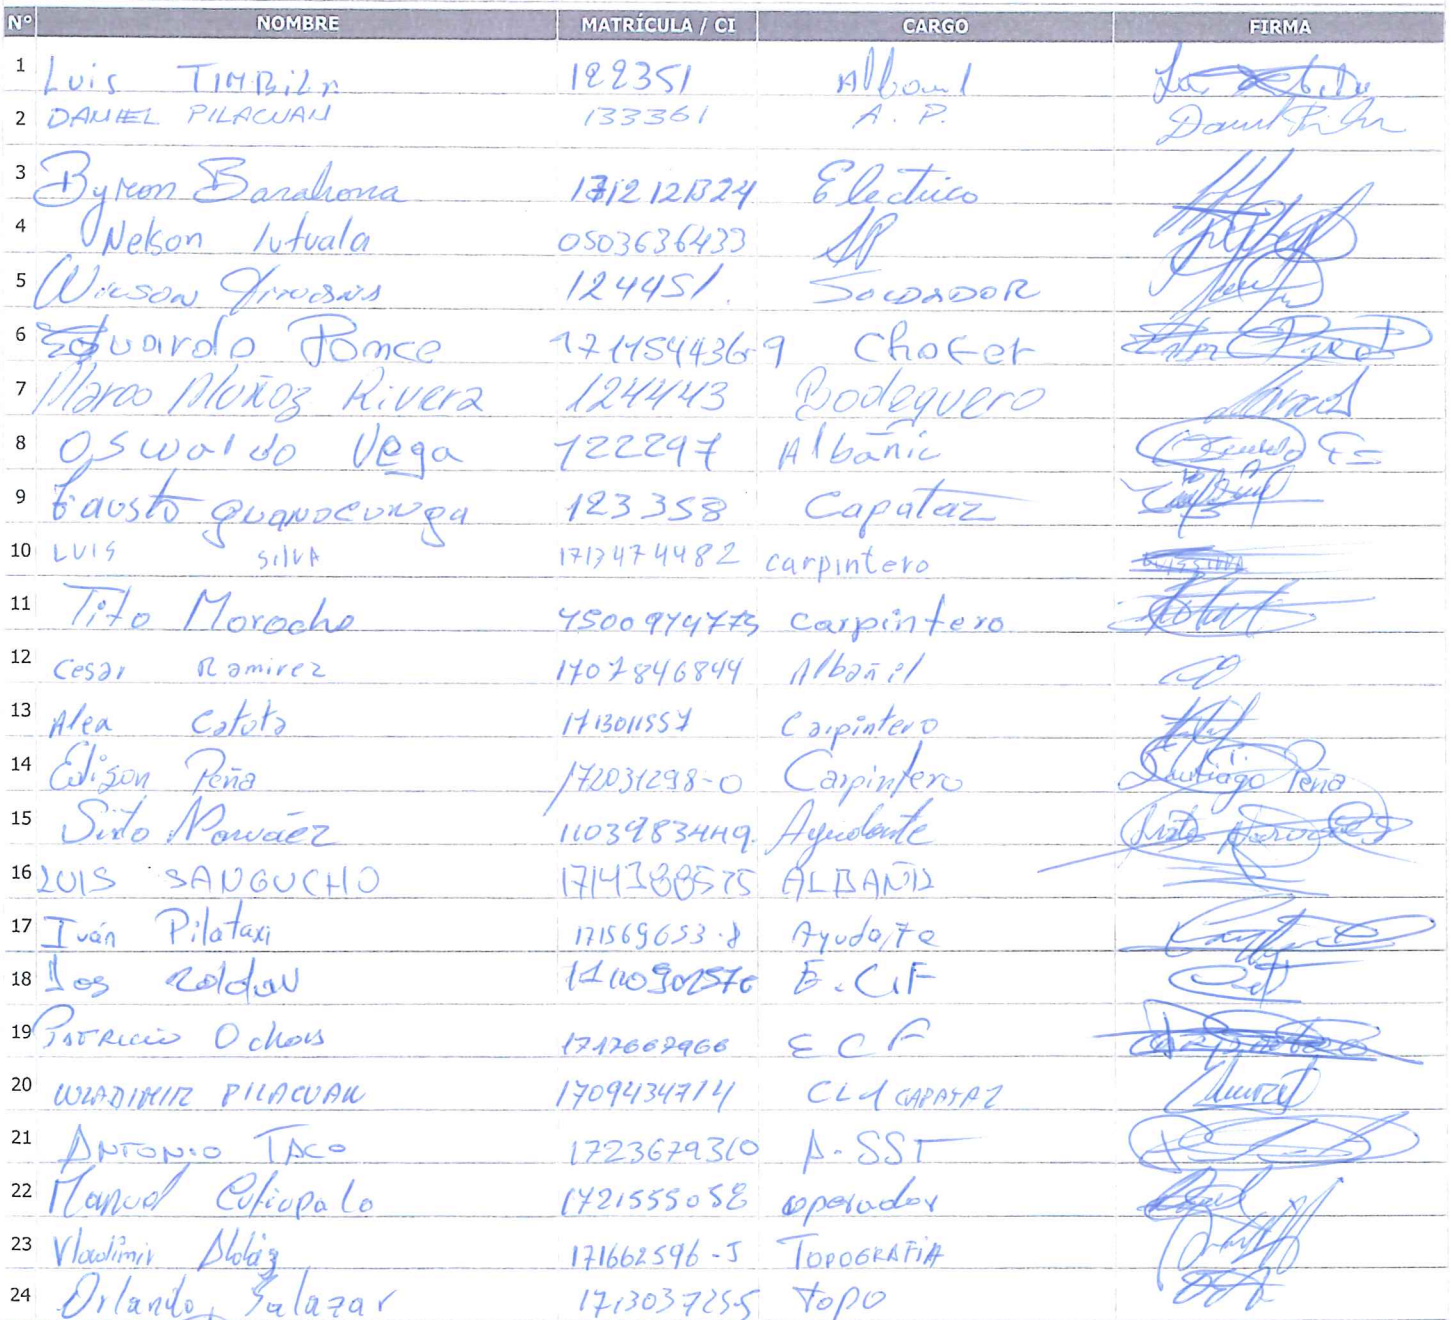 N° NOMBRE MATRÍCULA / CI CARGO FIRMA
1 Luis TIMBILA 122351 Albanil
2 DANIEL PILACUAN 133361 A. P.
3 Byron Barahona 1712121324 Electrico
4 Nelson Tutuala 0503636433 AP
5 WILSON 124451. SOLDADOR
6 Eduardo Ponce 171454436-9 Chofer
7 Marco Muñoz Rivera 124443 Bodeguero Marcos
8 Oswaldo Vega 122297 Albañil
9 Fausto guanocunga 123358 Capataz
10 LUIS SILVA 1713474482 carpintero LUIS SILVA
11 Tito Morocho 1500974775 carpintero
12 Cesar Ramirez 1707846844 Albañil
13 Alex Catota 1713011557 Carpintero
14 Edison Peña 172031298-0 Carpintero Santiago Peña
15 Sixto Narváez 1103983449. Ayudante Sixto Narvaez
16 LUIS SANGUCHO 1714388575 ALBAÑIL
17 Iván Pilataxi 171569653-8 Ayudante
18 Jos Roldan E.C.F
19 PATRICIO Ochoa 1717667966 E C F
20 WLADIMIR PILACUAN 1709434714 CL4 CAPATAZ
21 ANTONIO TACO 1723679310 A-SST
22 Manuel Cutiupala 1721555058 operador
23 Vladimir Aldáz 171662596-5 TOPOGRAFIA
24 Orlando Salazar 1713037255 TOPO